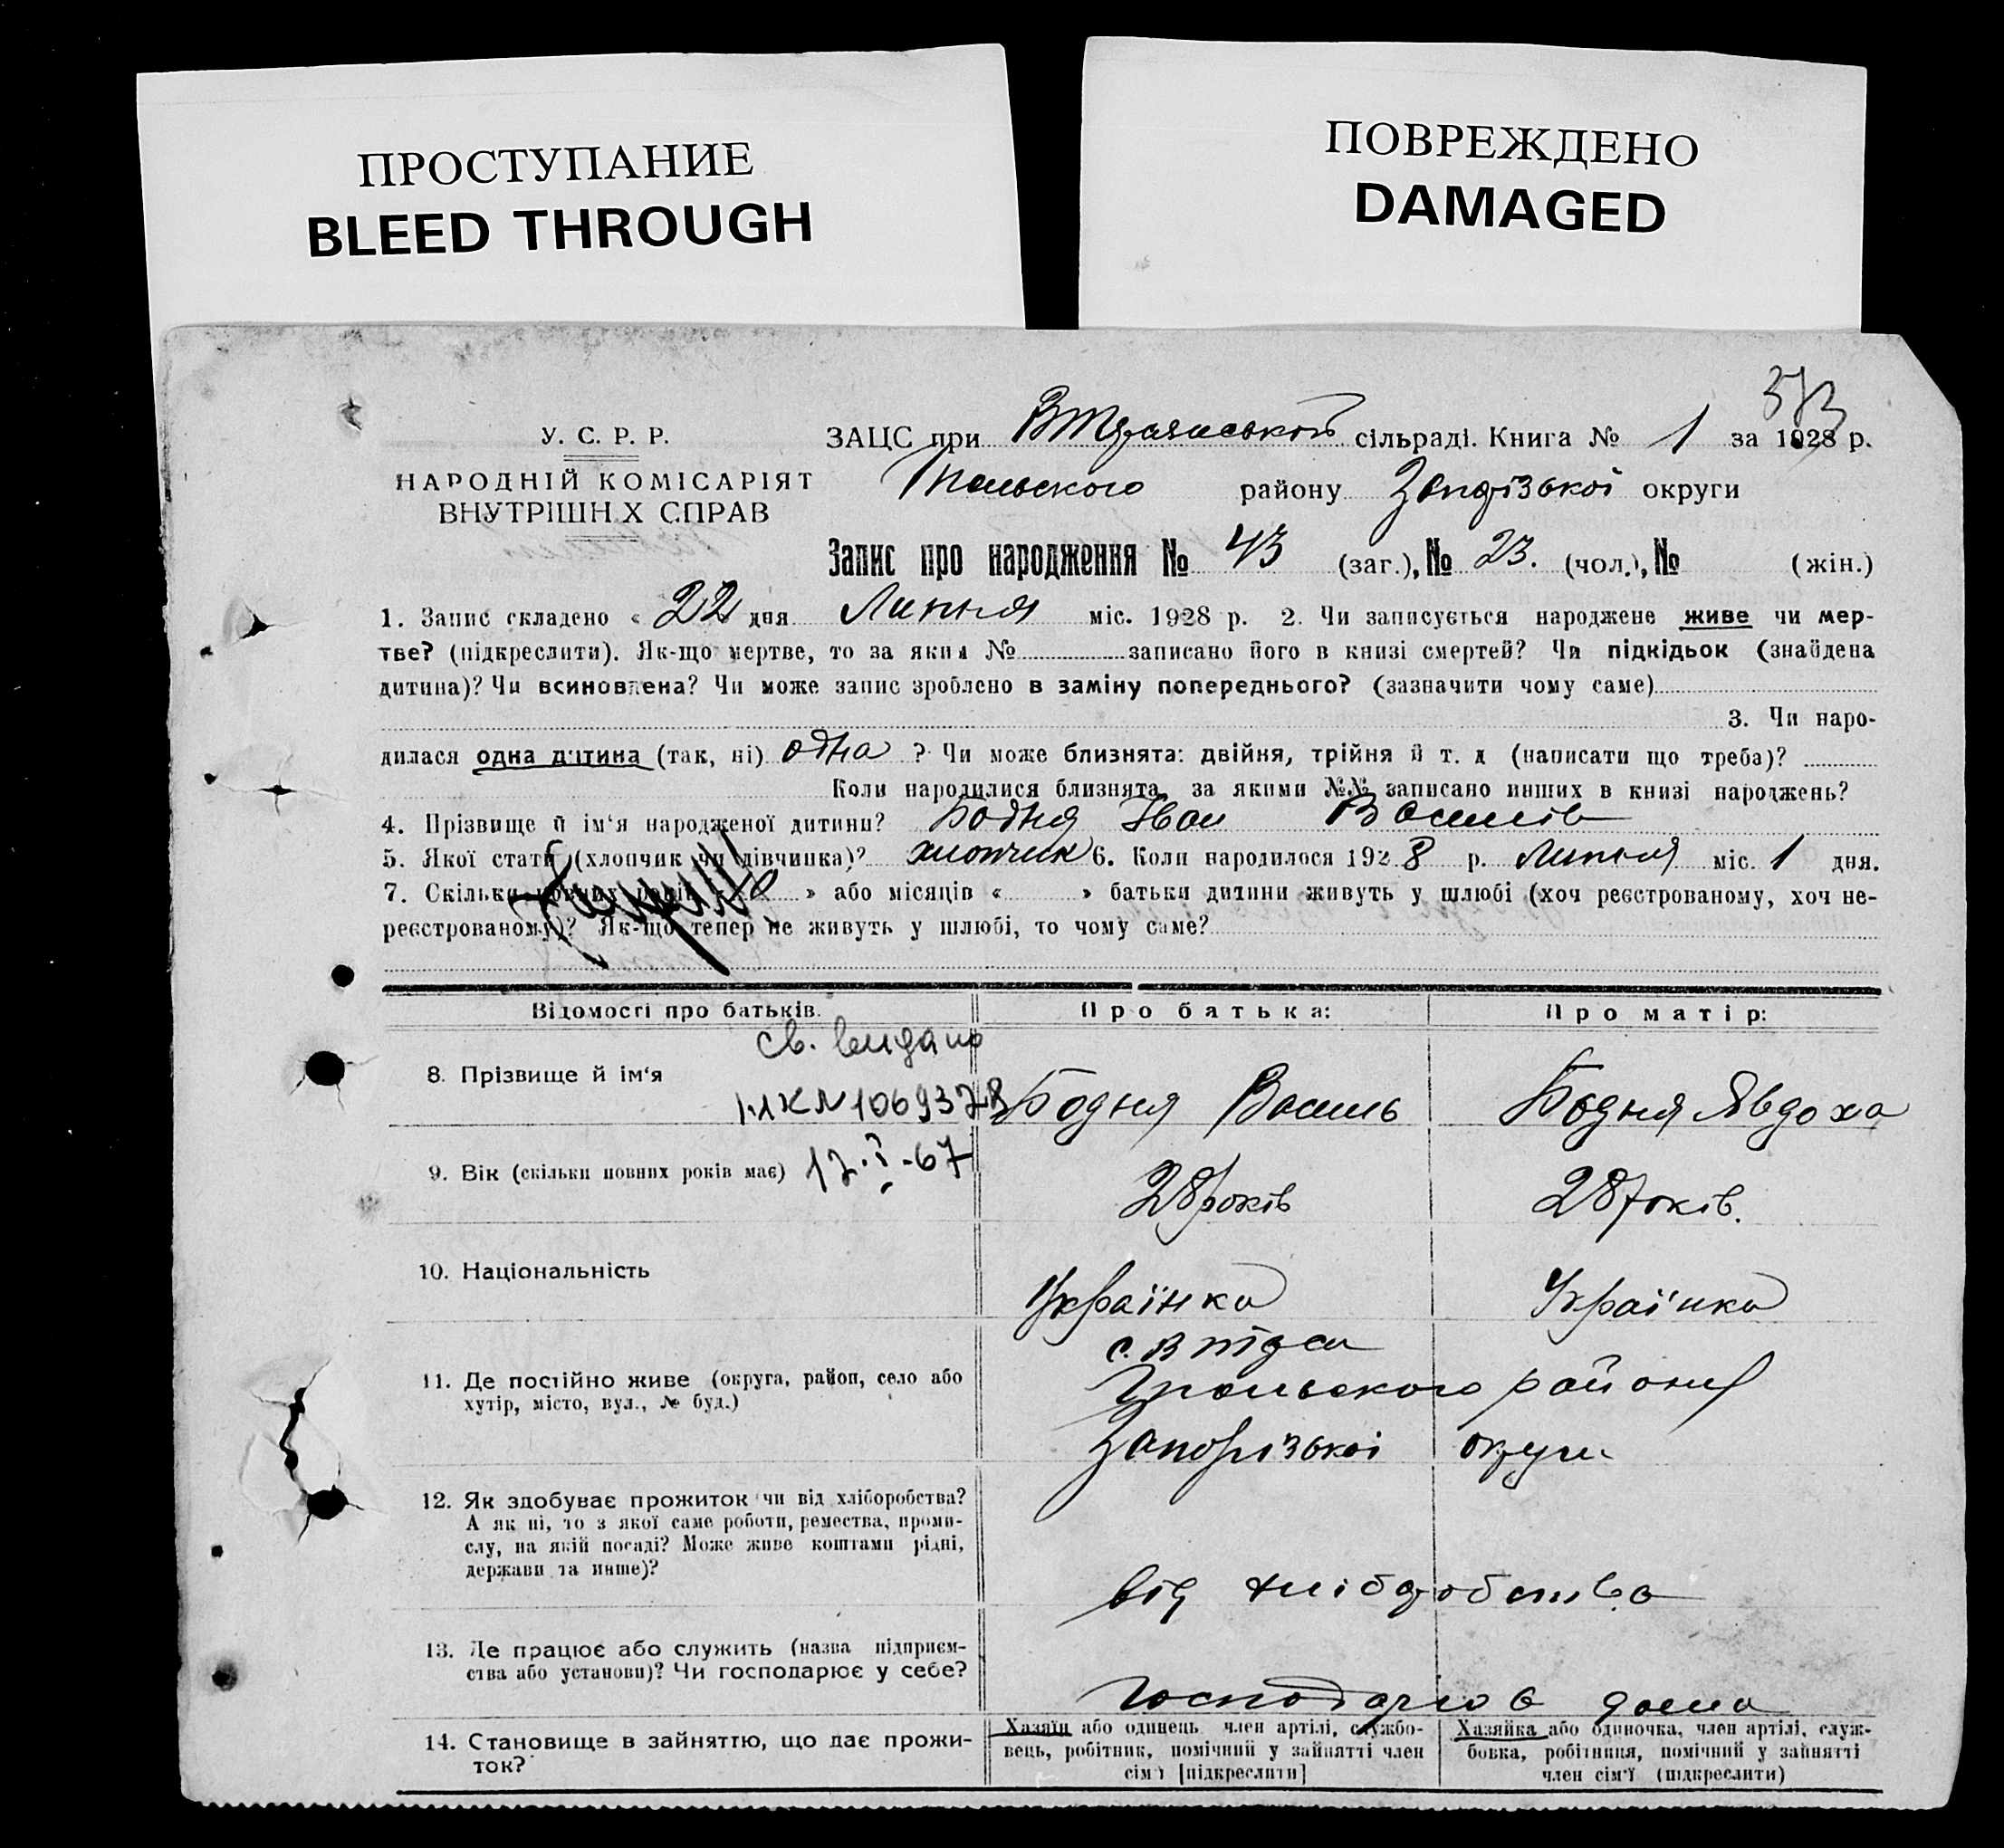 ПРОСТУПАНИЕ
BLEED THROUGH
ПОВРЕЖДЕНО
DAMAGED
У. С. Р. Р.
НАРОДНІЙ КОМІСАРІЯТ
ВНУТРІШН Х СПРАВ
373
ЗАЦС при сільраді. Книга № 1 за 1928 р.
району Запорізької округи
Запис про народження № 43 (заг.), № 23. (чол.), № (жін.)
1. Запис складено « 22 дня Липня міс. 1928 р. 2. Чи записується народжене живе чи мер-
тве? (підкреслити). Як-що мертве, то за яким № записано його в книзі смертей? Чи підкідьок (знайдена
дитина)? Чи всиновлена? Чи може запис зроблено в заміну попереднього? (зазначити чому саме)
3. Чи наро-
дилася одна дитина (так, ні) одна ? Чи може близнята: двійня, трійня й т. д (написати що треба)?
Коли народилися близнята, за якими №№ записано инших в книзі народжень?
4. Прізвище й ім'я народженої дитини? Бодня Іван Василів
5. Якої статі (хлопчик чи дівчинка)? хлопчик 6. Коли народилося 1928 р. Липня міс. 1 дня.
7. Скільки повних років » або місяців « » батьки дитини живуть у шлюбі (хоч реєстрованому, хоч не-
реєстрованому)? Як-що тепер не живуть у шлюбі, то чому саме?
Відомості про батьків. Про батька: Про матір:
св. видано
8. Прізвище й ім'я Бодня Василь Бодня Явдоха
№ 1069378
9. Вік (скільки повних років має) 28 років 28 років.
17.I.-67
10. Національність Українка Українка
11. Де постійно живе (округа, район, село або
хутір, місто, вул., № буд.)
с. району
Запорізької округи
12. Як здобуває прожиток чи від хліборобства?
А як ні, то з якої саме роботи, ремества, проми-
слу, на якій посаді? Може живе коштами рідні,
держави та инше)?
від хліборобства
13. Де працює або служить (назва підприєм-
ства або установи)? Чи господарює у себе?
дома
14. Становище в зайняттю, що дає прожи-
ток?
Хазяїн або одинець член артілі, службо-
вець, робітник, помічний у зайнятті член
сім'ї [підкреслити]
Хазяйка або одиночка, член артілі, служ-
бовка, робітниця, помічний у зайнятті
член сім'ї (підкреслити)